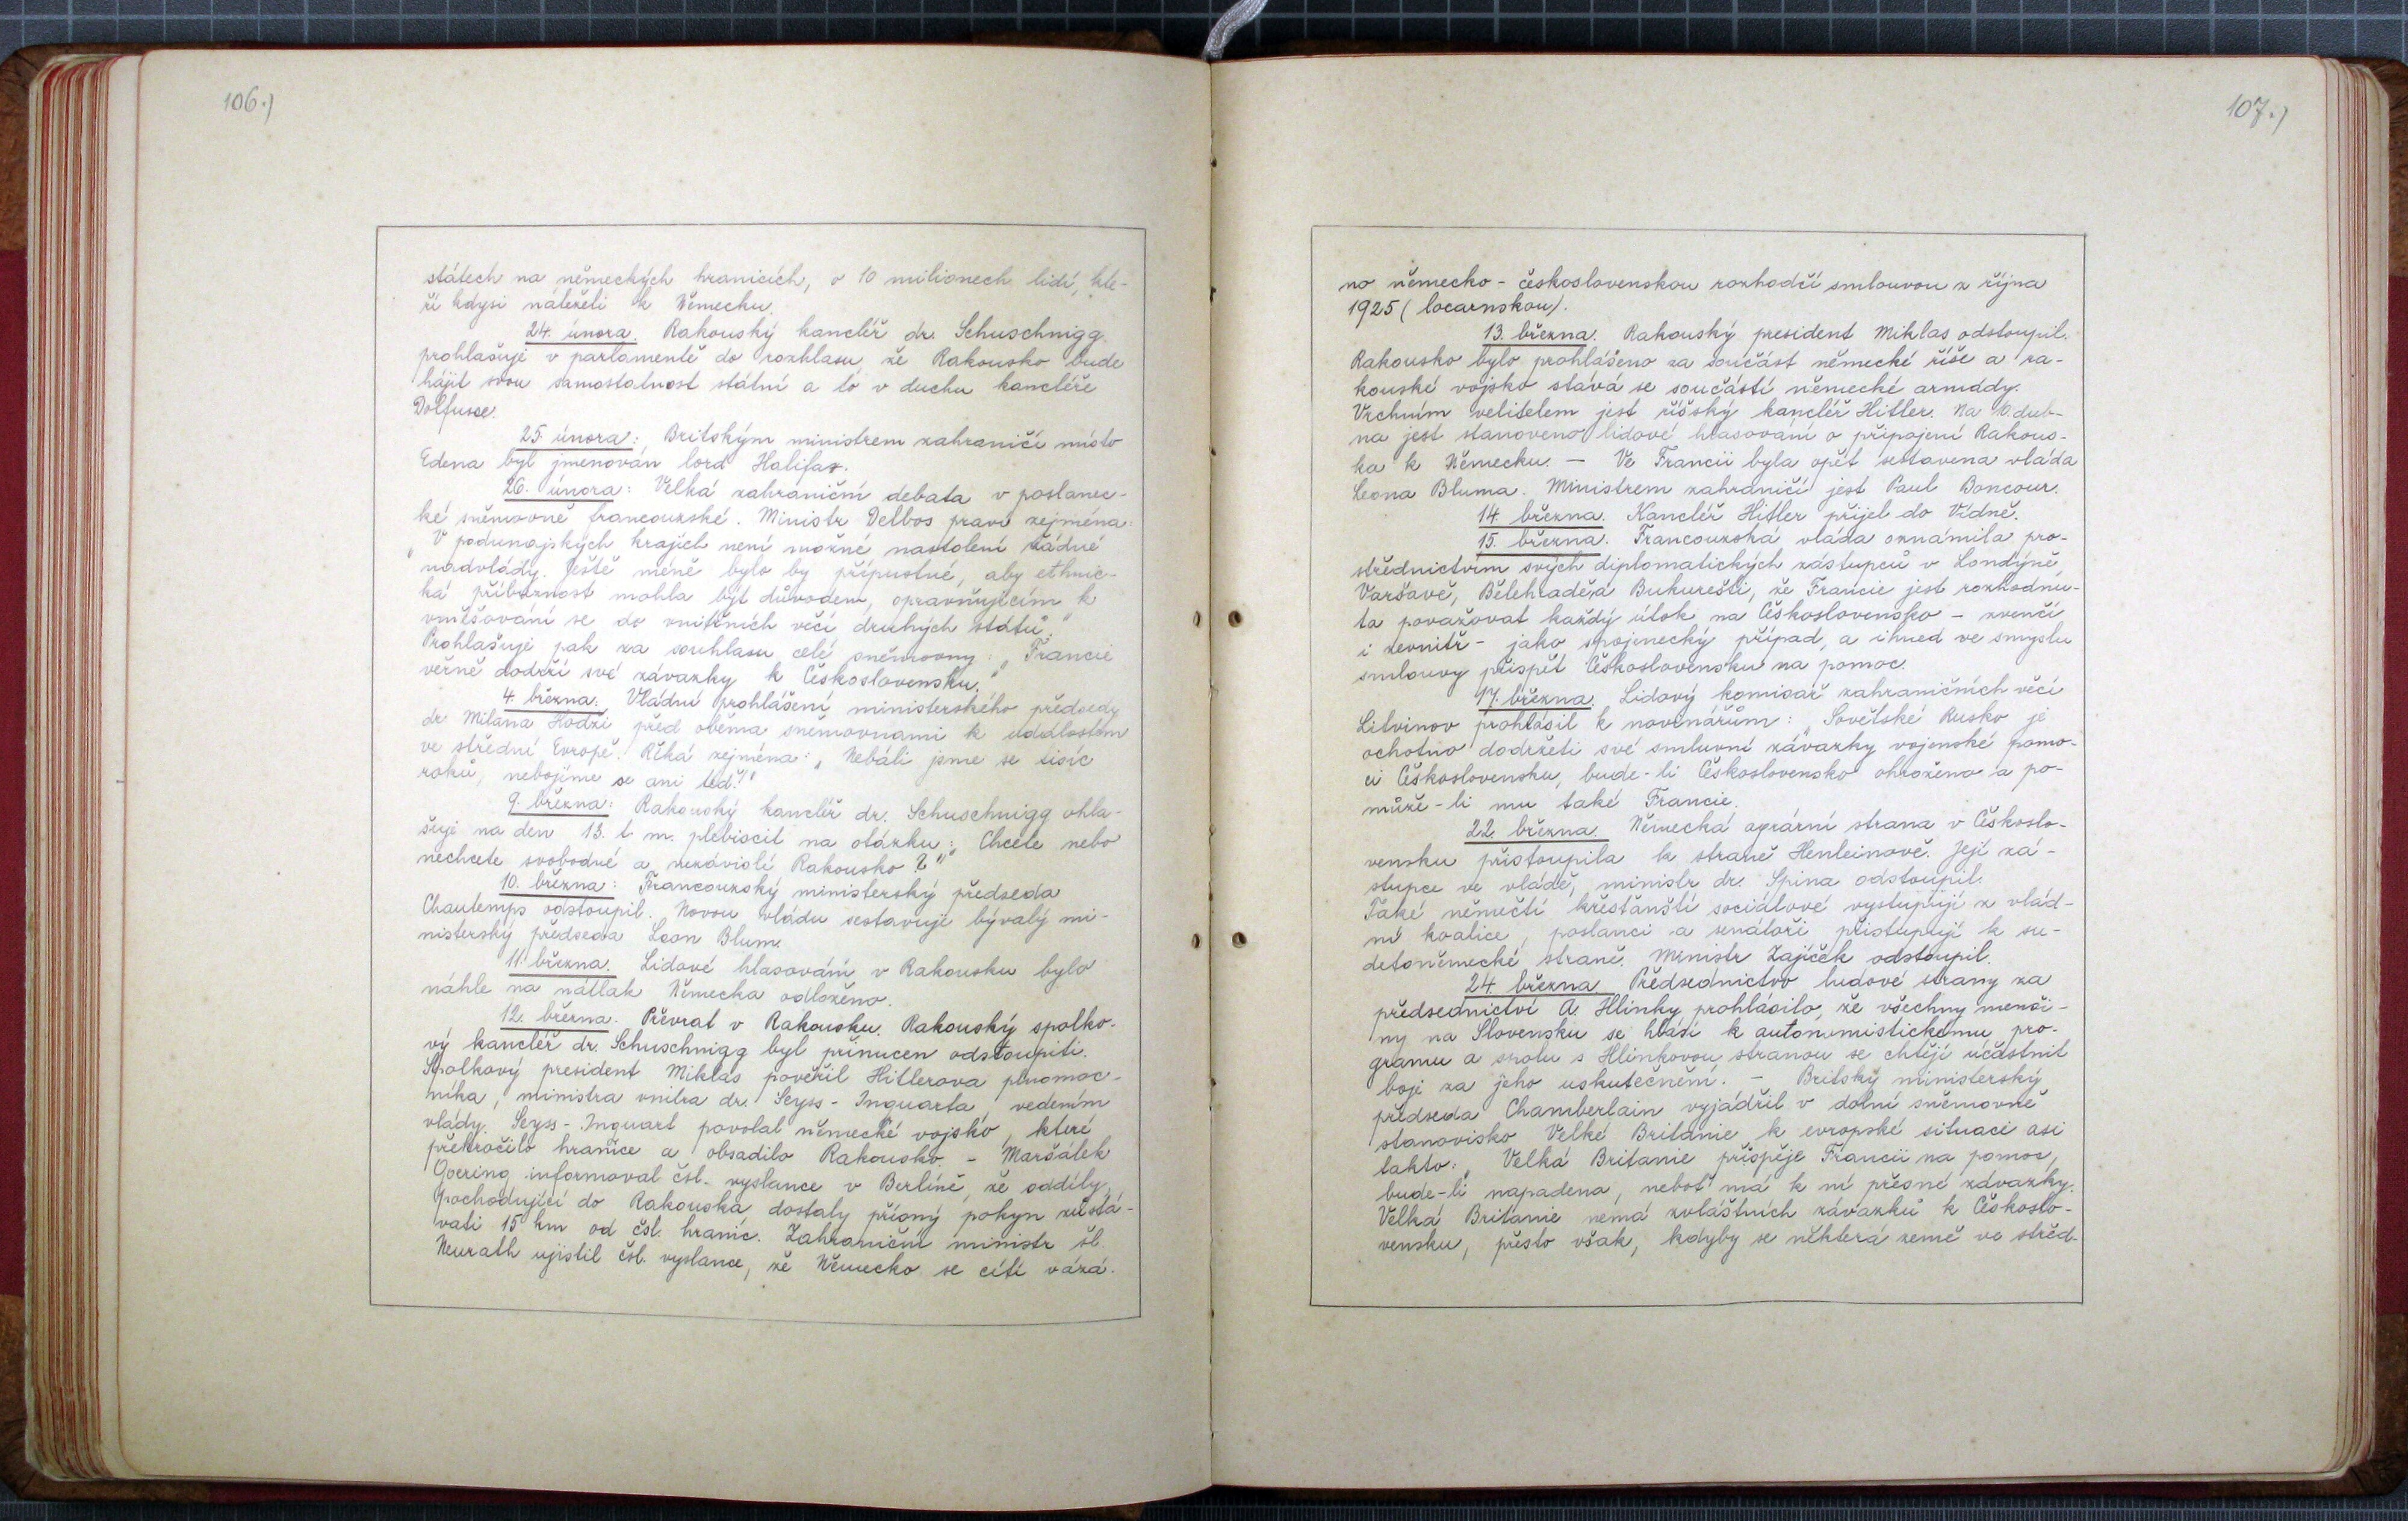 106.)
státech na německých hranicích, o 10 milionech lidí, kte-
ří kdysi náleželi k Německu.
24. února. Rakouský kancléř dr. Schuschnigg
prohlašuje v parlamentě do rozhlasu, že Rakousko bude
hájit svou samostatnost státní a to v duchu kancléře
Dolfusse.
25. února: Britským ministrem zahraničí místo
Edena byl jmenován lord Halifax.
26. února: Velká zahraniční debata v poslanec-
ké sněmovně francouzské. Ministr Delbos praví zejména:
„V podunajských krajích není možné nastolení žádné
nadvlády. Ještě méně bylo by přípustné, aby ethnic-
ká příbuznost mohla být důvodem, opravňujícím k
vměšování se do vnitřních věcí druhých států."
Prohlašuje pak za souhlasu celé sněmovny: „Francie
věrně dodrží své závazky k Československu."
4. března: Vládní prohlášení ministerského předsedy
dr. Milana Hodži před oběma sněmovnami k událostem
ve střední Evropě. Říká zejména: „Nebáli jsme se tisíc
roků, nebojíme se ani teď!"
9. března: Rakouský kancléř dr. Schuschnigg ohla-
šuje na den 13. t. m. plebiscit na otázku: „Chcete nebo
nechcete svobodné a nezávislé Rakousko?"
10. března: Francouzský ministerský předseda
Chautemps odstoupil. Novou vládu sestavuje bývalý mi-
nisterský předseda Leon Blum.
11. března. Lidové hlasování v Rakousku bylo
náhle na nátlak Německa odloženo.
12. března. Převrat v Rakousku. Rakouský spolko-
vý kancléř dr. Schuschnigg byl přinucen odstoupiti.
Spolkový president Miklas pověřil Hitlerova plnomoc-
níka, ministra vnitra dr. Seyss-Inquarta, vedením
vlády. Seyss-Inquart povolal německé vojsko, které
překročilo hranice a obsadilo Rakousko. - Maršálek
Goering informoval čsl. vyslance v Berlíně, že oddíly,
pochodující do Rakouska dostaly přísný pokyn zůstá-
vati 15 km od čsl. hranic. Zahraniční ministr šl.
Neurath ujistil čsl. vyslance, že Německo se cítí vázá-
107.)
no německo-československou rozhodčí smlouvou z října
1925 (locarnskou).
13. března. Rakouský president Miklas odstoupil.
Rakousko bylo prohlášeno za součást německé říše a ra-
kouské vojsko stává se součástí německé armády.
Vrchním velitelem jest říšský kancléř Hitler. Na 10 dub-
na jest stanoveno lidové hlasování o připojení Rakous-
ka k Německu. — Ve Francii byla opět sestavena vláda
Leona Bluma. Ministrem zahraničí jest Paul Boncour.
14. března. Kancléř Hitler přijel do Vídně.
15. března. Francouzská vláda oznámila pro-
střednictvím svých diplomatických zástupců v Londýně,
Varšavě, Bělehradě, a Bukurešti, že Francie jest rozhodnu-
ta považovat každý útok na Československo - zvenčí
i zevnitř - jako spojenecký případ, a ihned ve smyslu
smlouvy přispět Československu na pomoc.
17. března. Lidový komisař zahraničních věcí
Litvinov prohlásil k novinářům: „Sovětské Rusko je
ochotno dodržeti své smluvní závazky vojenské pomo-
ci Československu, bude-li Československo ohroženo a po-
může-li mu také Francie.
22. března. Německá agrární strana v Českoslo-
vensku přistoupila k straně Henleinově. Její zá-
stupce ve vládě, ministr dr. Spina odstoupil.
Také němečtí křesťanští sociálové vystupují z vlád-
ní koalice, poslanci a senátoři přistupují k su-
detoněmecké straně. Ministr Zajíček odstoupil.
24. března. Předsednictvo ludové strany za
předsednictví A. Hlinky prohlásilo, že všechny menši-
ny na Slovensku se hlásí k autonomistickému pro-
gramu a spolu s Hlinkovou stranou se chtějí účastnit
boje za jeho uskutečnění. - Britský ministerský
předseda Chamberlain vyjádřil v dolní sněmovně
stanovisko Velké Britanie k evropské situaci asi
takto: „Velká Britanie přispěje Francii na pomoc,
bude-li napadena, neboť má k ní přesné závazky.
Velká Britanie nemá zvláštních závazků k Českoslo-
vensku, přesto však, kdyby se některá země ve střed-